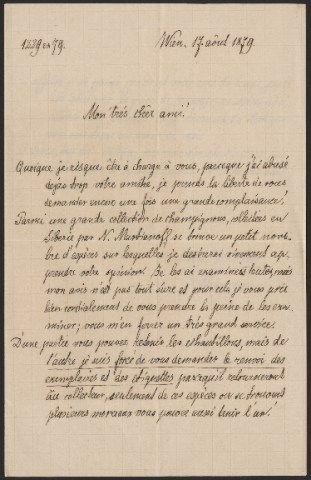 1229 ex 79. Wien, 17. août 1879.
Mon très cher ami!
Quoique je risque être à charge à vous, parceque j'ai abusé
dejas trop votre amitié, je prends la liberté de vous
demander encore une fois une grande complaisance.
Parmi une grande collection de champignons, collectés en
Siberie par N. Martianoff se trouve un petit nom-
bre d'espèces sur lesquelles je desirerai vivement ap-
prendre votre opinion. Je les ai examinées toutes, mais
mon avis n'est pas tout sure et pour cela je vous prie
bien cordialement de vous prendre la peine de les exa-
miner; vous m'en ferez un très grand service.
D'une partie vous pouvez retenir les echantillons, mais de
l'autre je suis forcé de vous demander le renvoi des
exemplaires et des etiquettes parcequ'il retourneront
au collecteur, seulement de ces espèces ou se trouvent
plusieurs morceaux vous pouvez aussi tenir l'un!